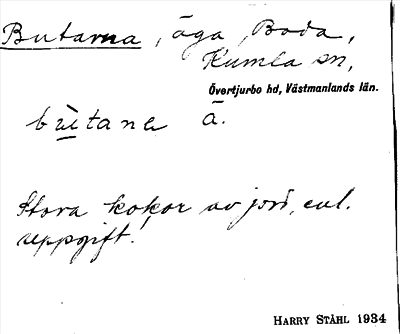 Butarna, äga, Boda,
Kumla sn,
Övertjurbo hd, Västmanlands län.
bùtana ā.
Stora kokor av jord, enl.
uppgift.
HARRY STÅHL 1934